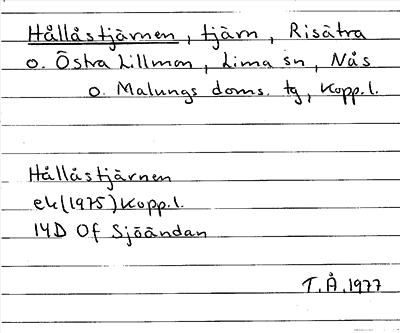 Hållåstjärnen, tjärn, Risätra
o. Östra Lillmon, Lima sn, Nås
o. Malungs doms. tg, Kopp.l.
Hållåstjärnen
ek(1975)Kopp.l.
14D Of Sjöändan
T.Å.1977